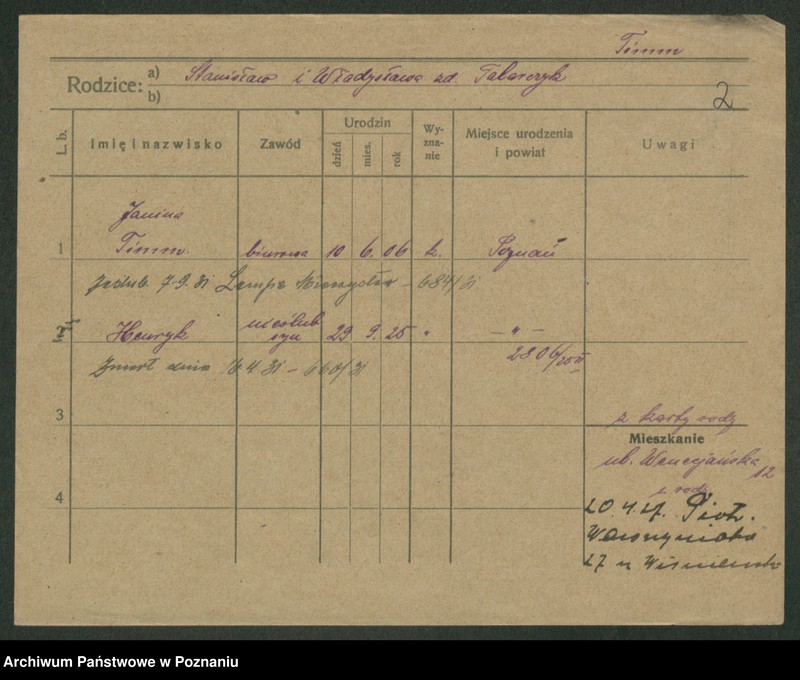 Timm
Rodzice: a) Stanisław i Władysława zd. Tabarczyk
b)
2
L. b.
Imię i nazwisko
Zawód
Urodzin
dzień
mies.
rok
Wy-
zna-
nie
Miejsce urodzenia
i powiat
Uwagi
Janina
1 Timm. biurowa 10 6. 06 k. Poznań
zaślub. 7.9.31 Lampe - 684/31
nieślub
2 Henryk syn 29 9. 25 " — " —
2806/25
Zmarł dnia 16 4. 31 — 660/31
3
z karty rodz
Mieszkanie
ul. Wenecjańska
12
z rodz
4
20.4.27. Piotr.
Wawrzyniaka
27
Archiwum Państwowe w Poznaniu